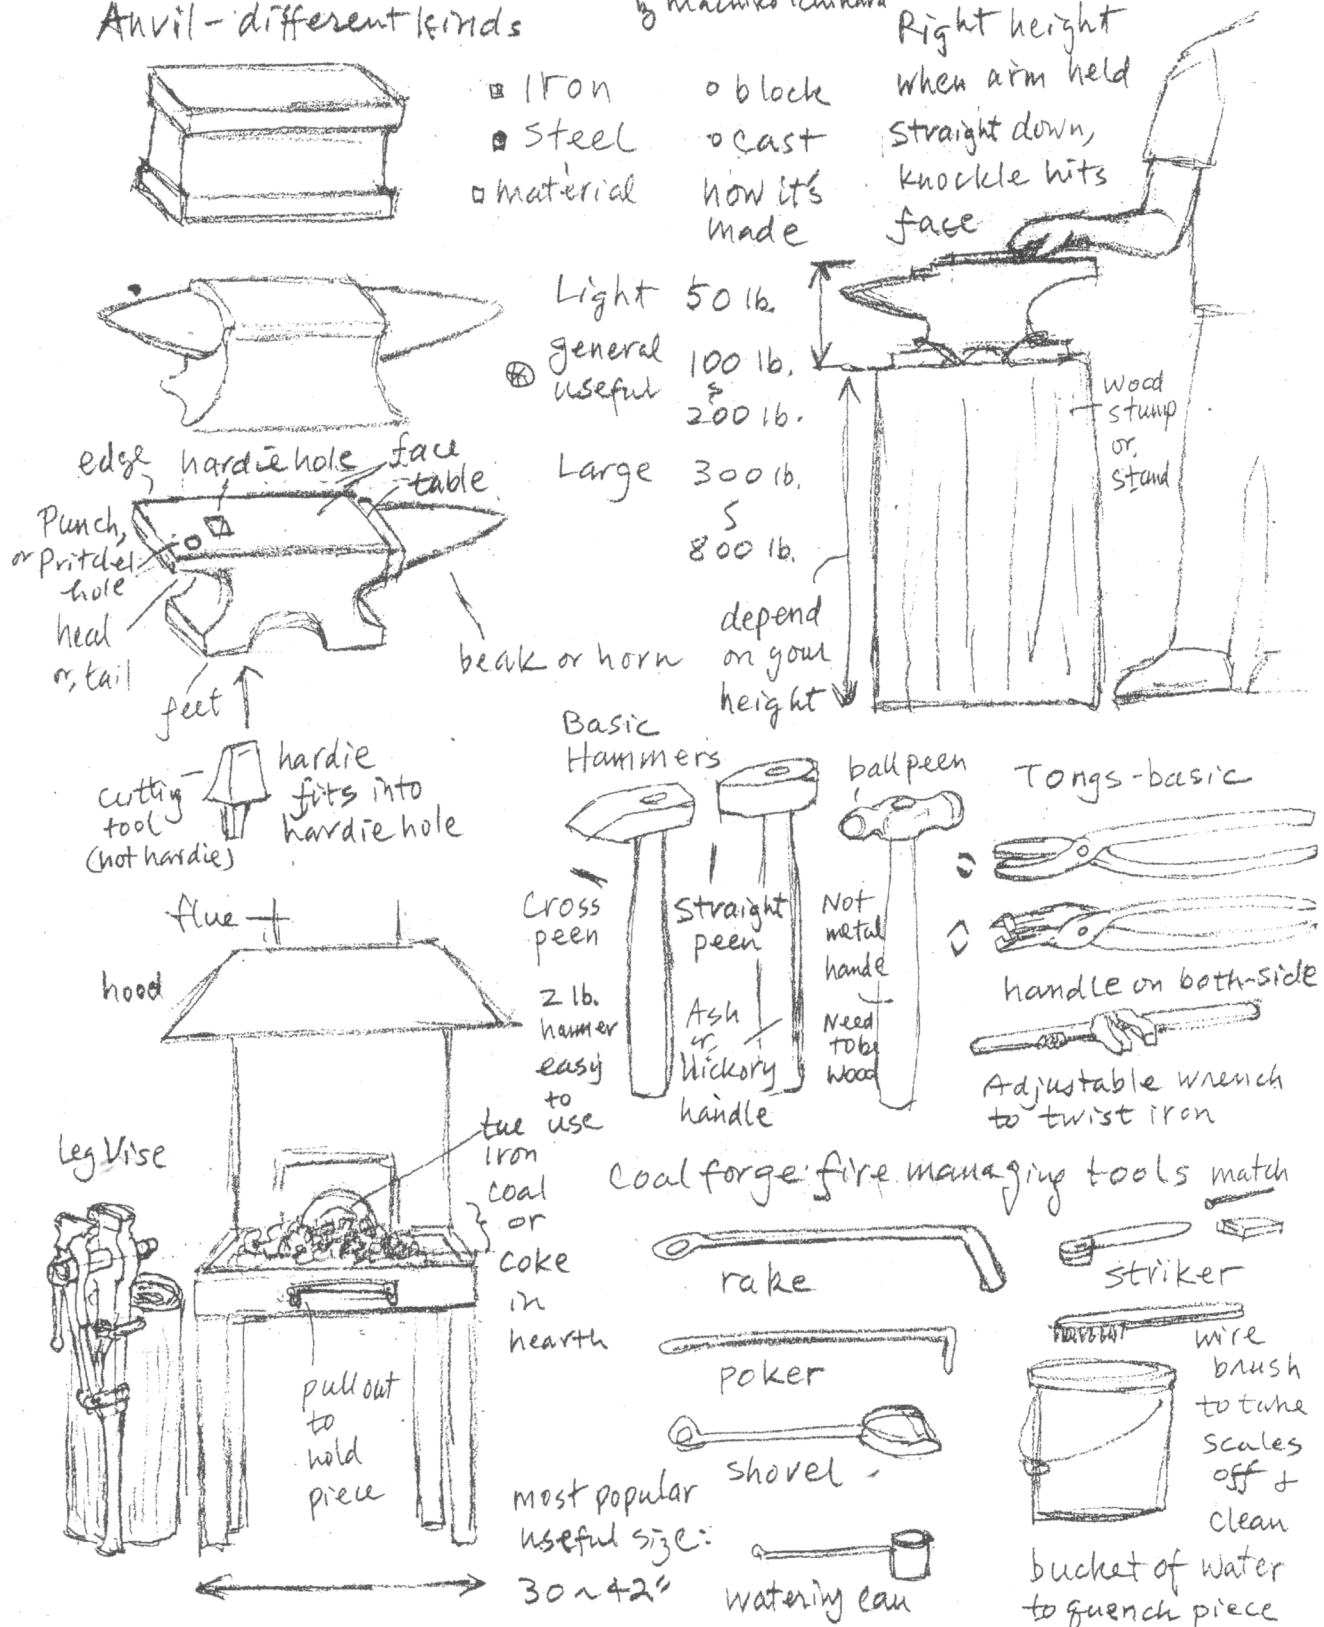 Anvil - different kinds
by Machiko Ichihara
Iron
Steel
material
block
cast
how it's
made
Right height
when arm held
straight down,
knockle hits
face
Light 50 lb.
general
useful
100 lb.
200 lb.
Large 300 lb.
800 lb.
wood
stump
or
stand
depend
on your
height
edge
hardie hole
face
table
Punch,
or pritchel
hole
heal
or, tail
feet
beak or horn
cutting
tool
(hot hardie)
hardie
fits into
hardie hole
Basic
Hammers
ball peen
Cross
peen
2 lb.
hammer
easy
to
use
Straight
peen
Ash
or,
Hickory
handle
Not
metal
hande
Need
to be
wood
Tongs - basic
handle on both-side
Adjustable wrench
to twist iron
flue
hood
Leg Vise
tue
iron
coal
or
coke
in
hearth
pull out
to
hold
piece
most popular
useful size:
30 ~ 42"
Coal forge: fire managing tools
match
rake
striker
poker
wire
brush
to take
scales
off &
clean
shovel
watering can
bucket of water
to quench piece